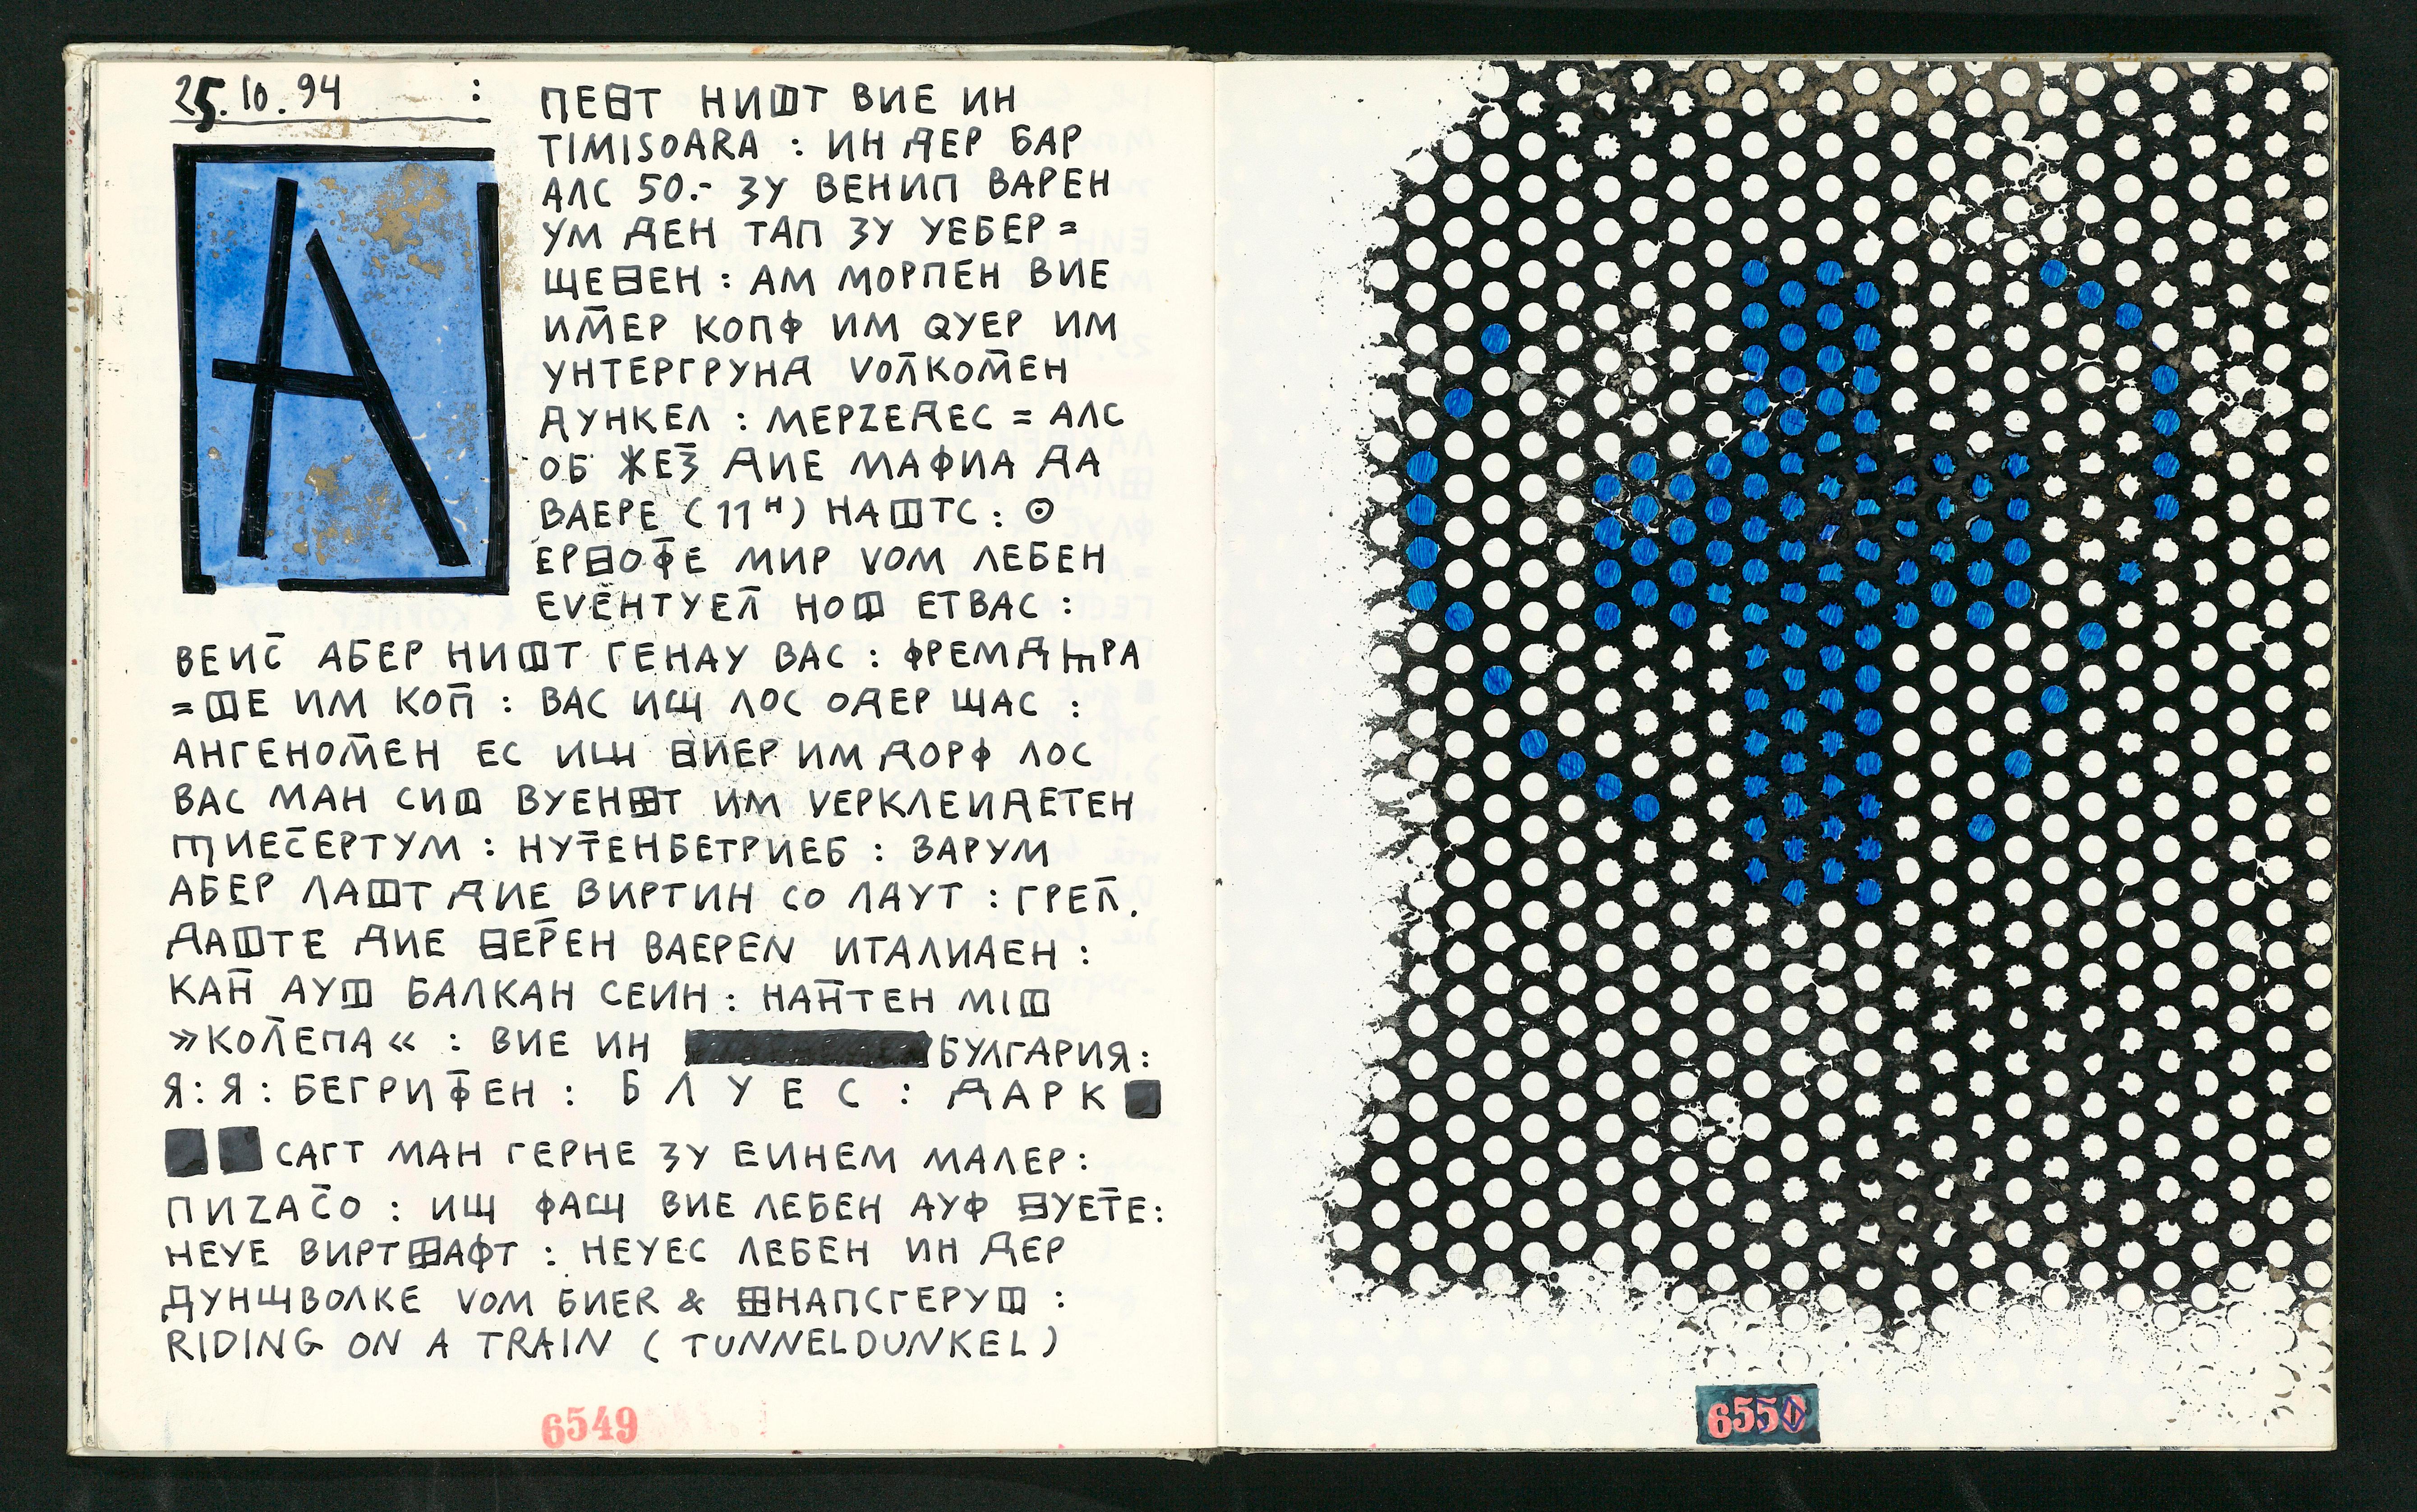 25.10.94 :
А
ПЕ⊟Т НИ◫Т ВИЕ ИН
TIMISOARA : ИН ДЕР БАР
АЛС 50.- ЗУ ВЕНИП ВАРЕН
УМ ДЕН ТАП ЗУ УЕБЕР =
ЩЕ⊟ЕН : АМ МОРПЕН ВИЕ
ИМ̄ЕР КОПФ ИМ QУЕР ИМ
УНТЕРГРУНД VОЛ̄КОМ̄ЕН
ДУНКЕЛ : МЕРZЕДЕС = АЛС
ОБ ЖЕЗ̄ ДИЕ МАФИА ДА
ВАЕРЕ (11ᴴ) НА◫ТС : ⊙
ЕР⊟ОФ̄Е МИР VОМ ЛЕБЕН
ЕVЕНТУЕЛ̄ НО◫ ЕТВАС :
ВЕИС̄ АБЕР НИ◫Т ГЕНАУ ВАС : ФРЕМДЩРА
=◫Е ИМ КОП̄ : ВАС ИЩ ЛОС ОДЕР ЩАС :
АНГЕНОМ̄ЕН ЕС ИЩ ⊟ИЕР ИМ ДОРФ ЛОС
ВАС МАН СИ◫ ВУЕН⊞Т ИМ VЕРКЛЕИДЕТЕН
ПИЕС̄ЕРТУМ : НУТ̄ЕНБЕТРИЕБ : ВАРУМ
АБЕР ЛА◫Т ДИЕ ВИРТИН СО ЛАУТ : ГРЕЛ̄.
ДА◫ТЕ ДИЕ ⊟ЕР̄ЕН ВАЕРЕN ИТАЛИАЕН :
КАН̄ АУ◫ БАЛКАН СЕИН : НАН̄ТЕН МI◫
»КОЛ̄ЕПА« : ВИЕ ИН БУЛГАРИЯ:
Я:Я: БЕГРИФ̄ЕН : Б Л У Е С : ДАРК
САГТ МАН ГЕРНЕ ЗУ ЕИНЕМ МАЛЕР:
ПИZАС̄О : ИЩ ФАЩ ВИЕ ЛЕБЕН АУФ ⊟УЕТ̄Е:
НЕУЕ ВИРТ⊞АФТ : НЕУЕС ЛЕБЕН ИН ДЕР
ДУНЩВОЛКЕ VОМ БИЕR & ⊞НАПСГЕРУ◫ :
RIDING ON A TRAIN (TUNNELDUNKEL)
6549
6550